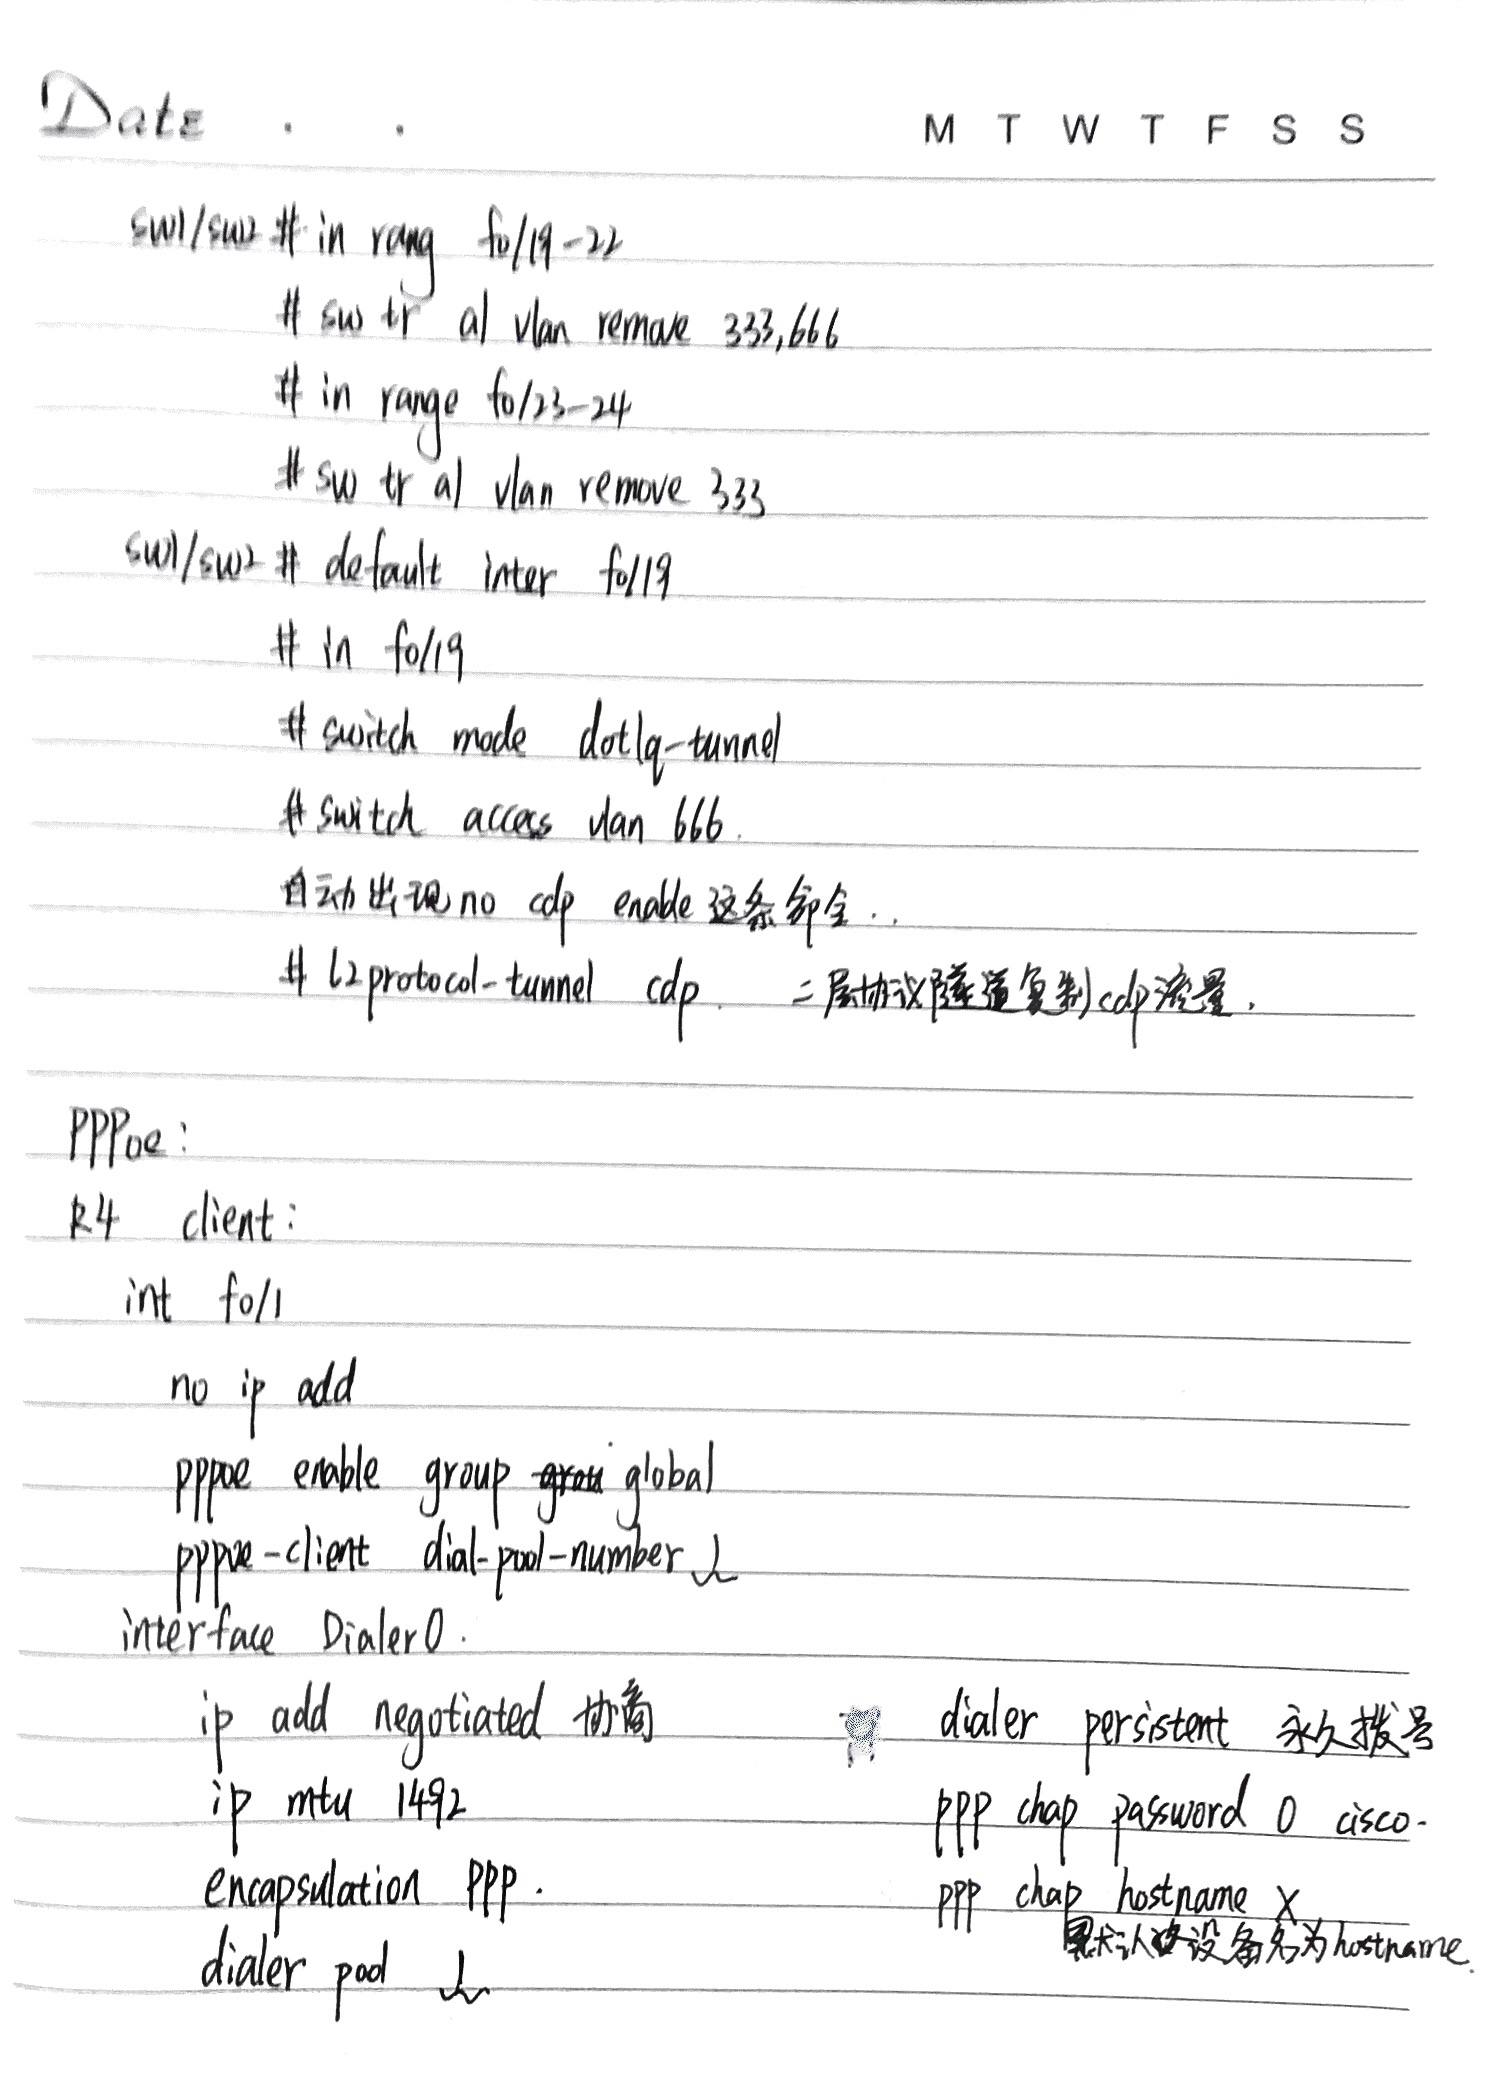 Date . .
M T W T F S S
sw1/sw2 # in rang f0/19-22
# sw tr al vlan remove 333,666
# in range f0/23-24
# sw tr al vlan remove 333
sw1/sw2 # default inter f0/19
# in f0/19
# switch mode dot1q-tunnel
# switch access vlan 666.
自动出现no cdp enable这条命令..
# l2protocol-tunnel cdp. 二层协议隧道复制cdp流量.
PPPoe:
R4 client:
int f0/1
no ip add
pppoe enable group global
pppoe-client dial-pool-number 1
interface Dialer0.
ip add negotiated 协商
ip mtu 1492
encapsulation PPP.
dialer pool 1
dialer persistent 永久拨号
ppp chap password 0 cisco.
ppp chap hostname X
默认以设备名为hostname.